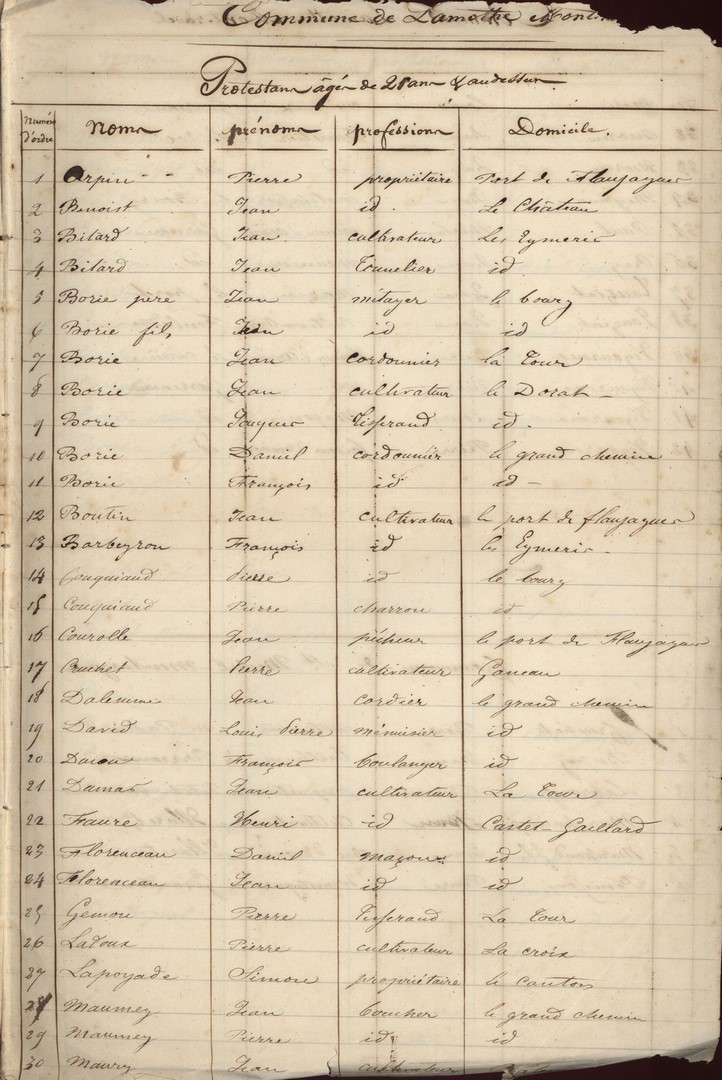 Commune de Lamothe Mont
Protestans âgés de 21 ans & audessus.
Numéro d'ordre Noms prénoms professions Domicile.
1 Arpin Pierre propriétaire Port de Flaujagues
2 Benoist Jean id. Le Château
3 Bitard Jean cultivateur Les Eymeris
4 Bitard Jean Tonnelier id.
5 Borie père Jean métayer le bourg
6 Borie fils Jean id id
7 Borie Jean cordonnier la Tour
8 Borie Jean cultivateur le Dorat
9 Borie Jacques Tisserand id.
10 Borie Daniel cordonnier le grand chemin
11 Borie François id id
12 Boutin Jean cultivateur le port de flaujagues
13 Barbeyron François id les Eymeris
14 Couquiaud Pierre id le bourg
15 Couquiaud Pierre charron id
16 Courolle Jean pêcheur le port de Flaujagues
17 Cruchet Pierre cultivateur Ganeau
18 Dalemme Jean cordier le grand chemin
19 David Louis Pierre ménuisier id
20 François boulanger id
21 Damas Jean cultivateur La Tour
22 Faure Henri id Castet-Gaillard
23 Florenceau Daniel maçon id
24 Florenceau Jean id id
25 Gemon Pierre Tisserand La Tour
26 Ladoux Pierre cultivateur La croix
27 Lapoyade Simon propriétaire le canton
28 Maumey Jean boucher le grand chemin
29 Maumey Pierre id id
30 Maury Jean cultivateur